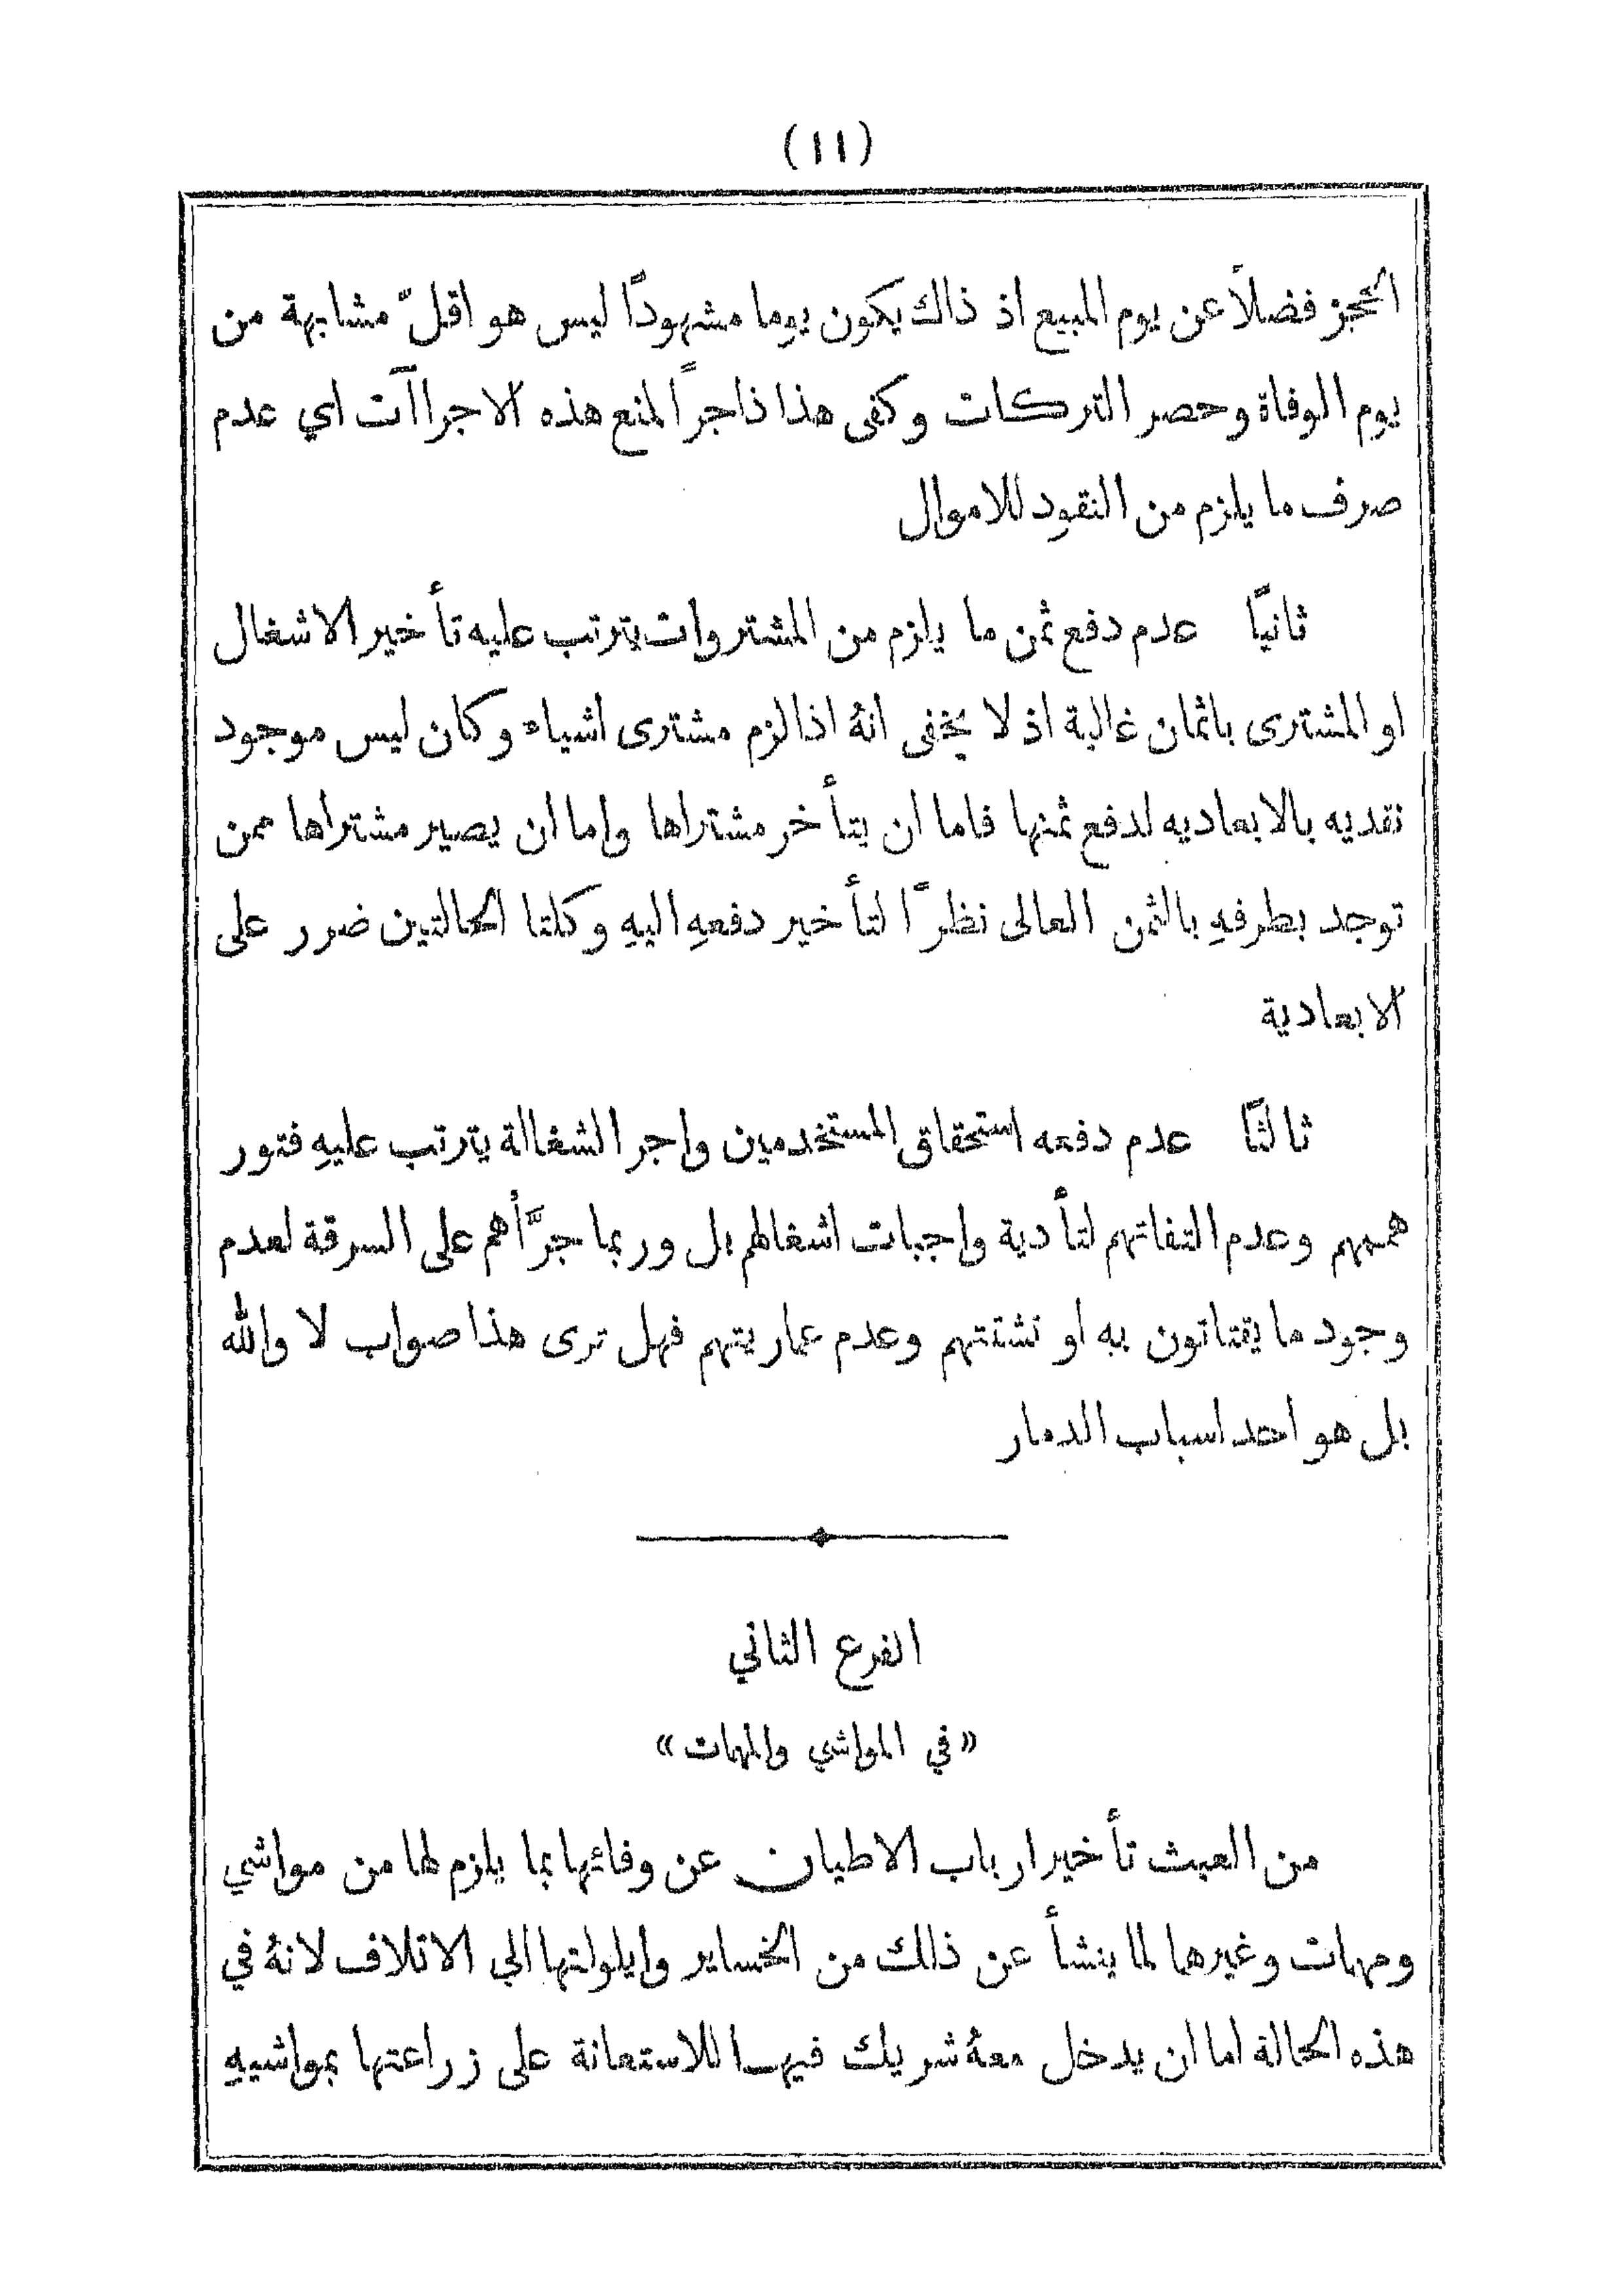 (١١)
الحجز فضلاً عن يوم المبيع اذ ذاك يكون يوما مشهودًا ليس هو اقلّ مشابهة من
يوم الوفاة وحصر التركات وكفى هذا ذاجرًا لمنع هذه الاجراآت اي عدم
صرف ما يلزم من النقود للاموال
ثانيًا عدم دفع ثمن ما يلزم من المشتروات يترتب عليه تأخير الاشغال
او المشترى باثمان غالية اذ لا يخفى انهُ اذا لزم مشترى اشياء وكان ليس موجود
نقديه بالابعاديه لدفع ثمنها فاما ان يتأخر مشتراها واما ان يصير مشتراها ممن
توجد بطرفهِ بالثمن العالى نظرًا لتأخير دفعهِ اليهِ وكلتا الحالتين ضرر على
الابعادية
ثالثًا عدم دفعه استحقاق المستخدمين واجر الشغالة يترتب عليهِ فتور
هممهم وعدم التفاتهم لتأدية واجبات اشغالهم بل وربما جرَّأهم على السرقة لعدم
وجود ما يقتاتون به او تشتتهم وعدم عماريتهم فهل ترى هذا صواب لا والله
بل هو احد اسباب الدمار
الفرع الثاني
«في المواشي والمهمات»
من العبث تأخير ارباب الاطيان عن وفائها بما يلزم لها من مواشي
ومهمات وغيرها لما ينشأ عن ذلك من الخساير وايلولتها الي الاتلاف لانهُ في
هذه الحالة اما ان يدخل معهُ شريك فيها للاستعانة على زراعتها بمواشيهِ